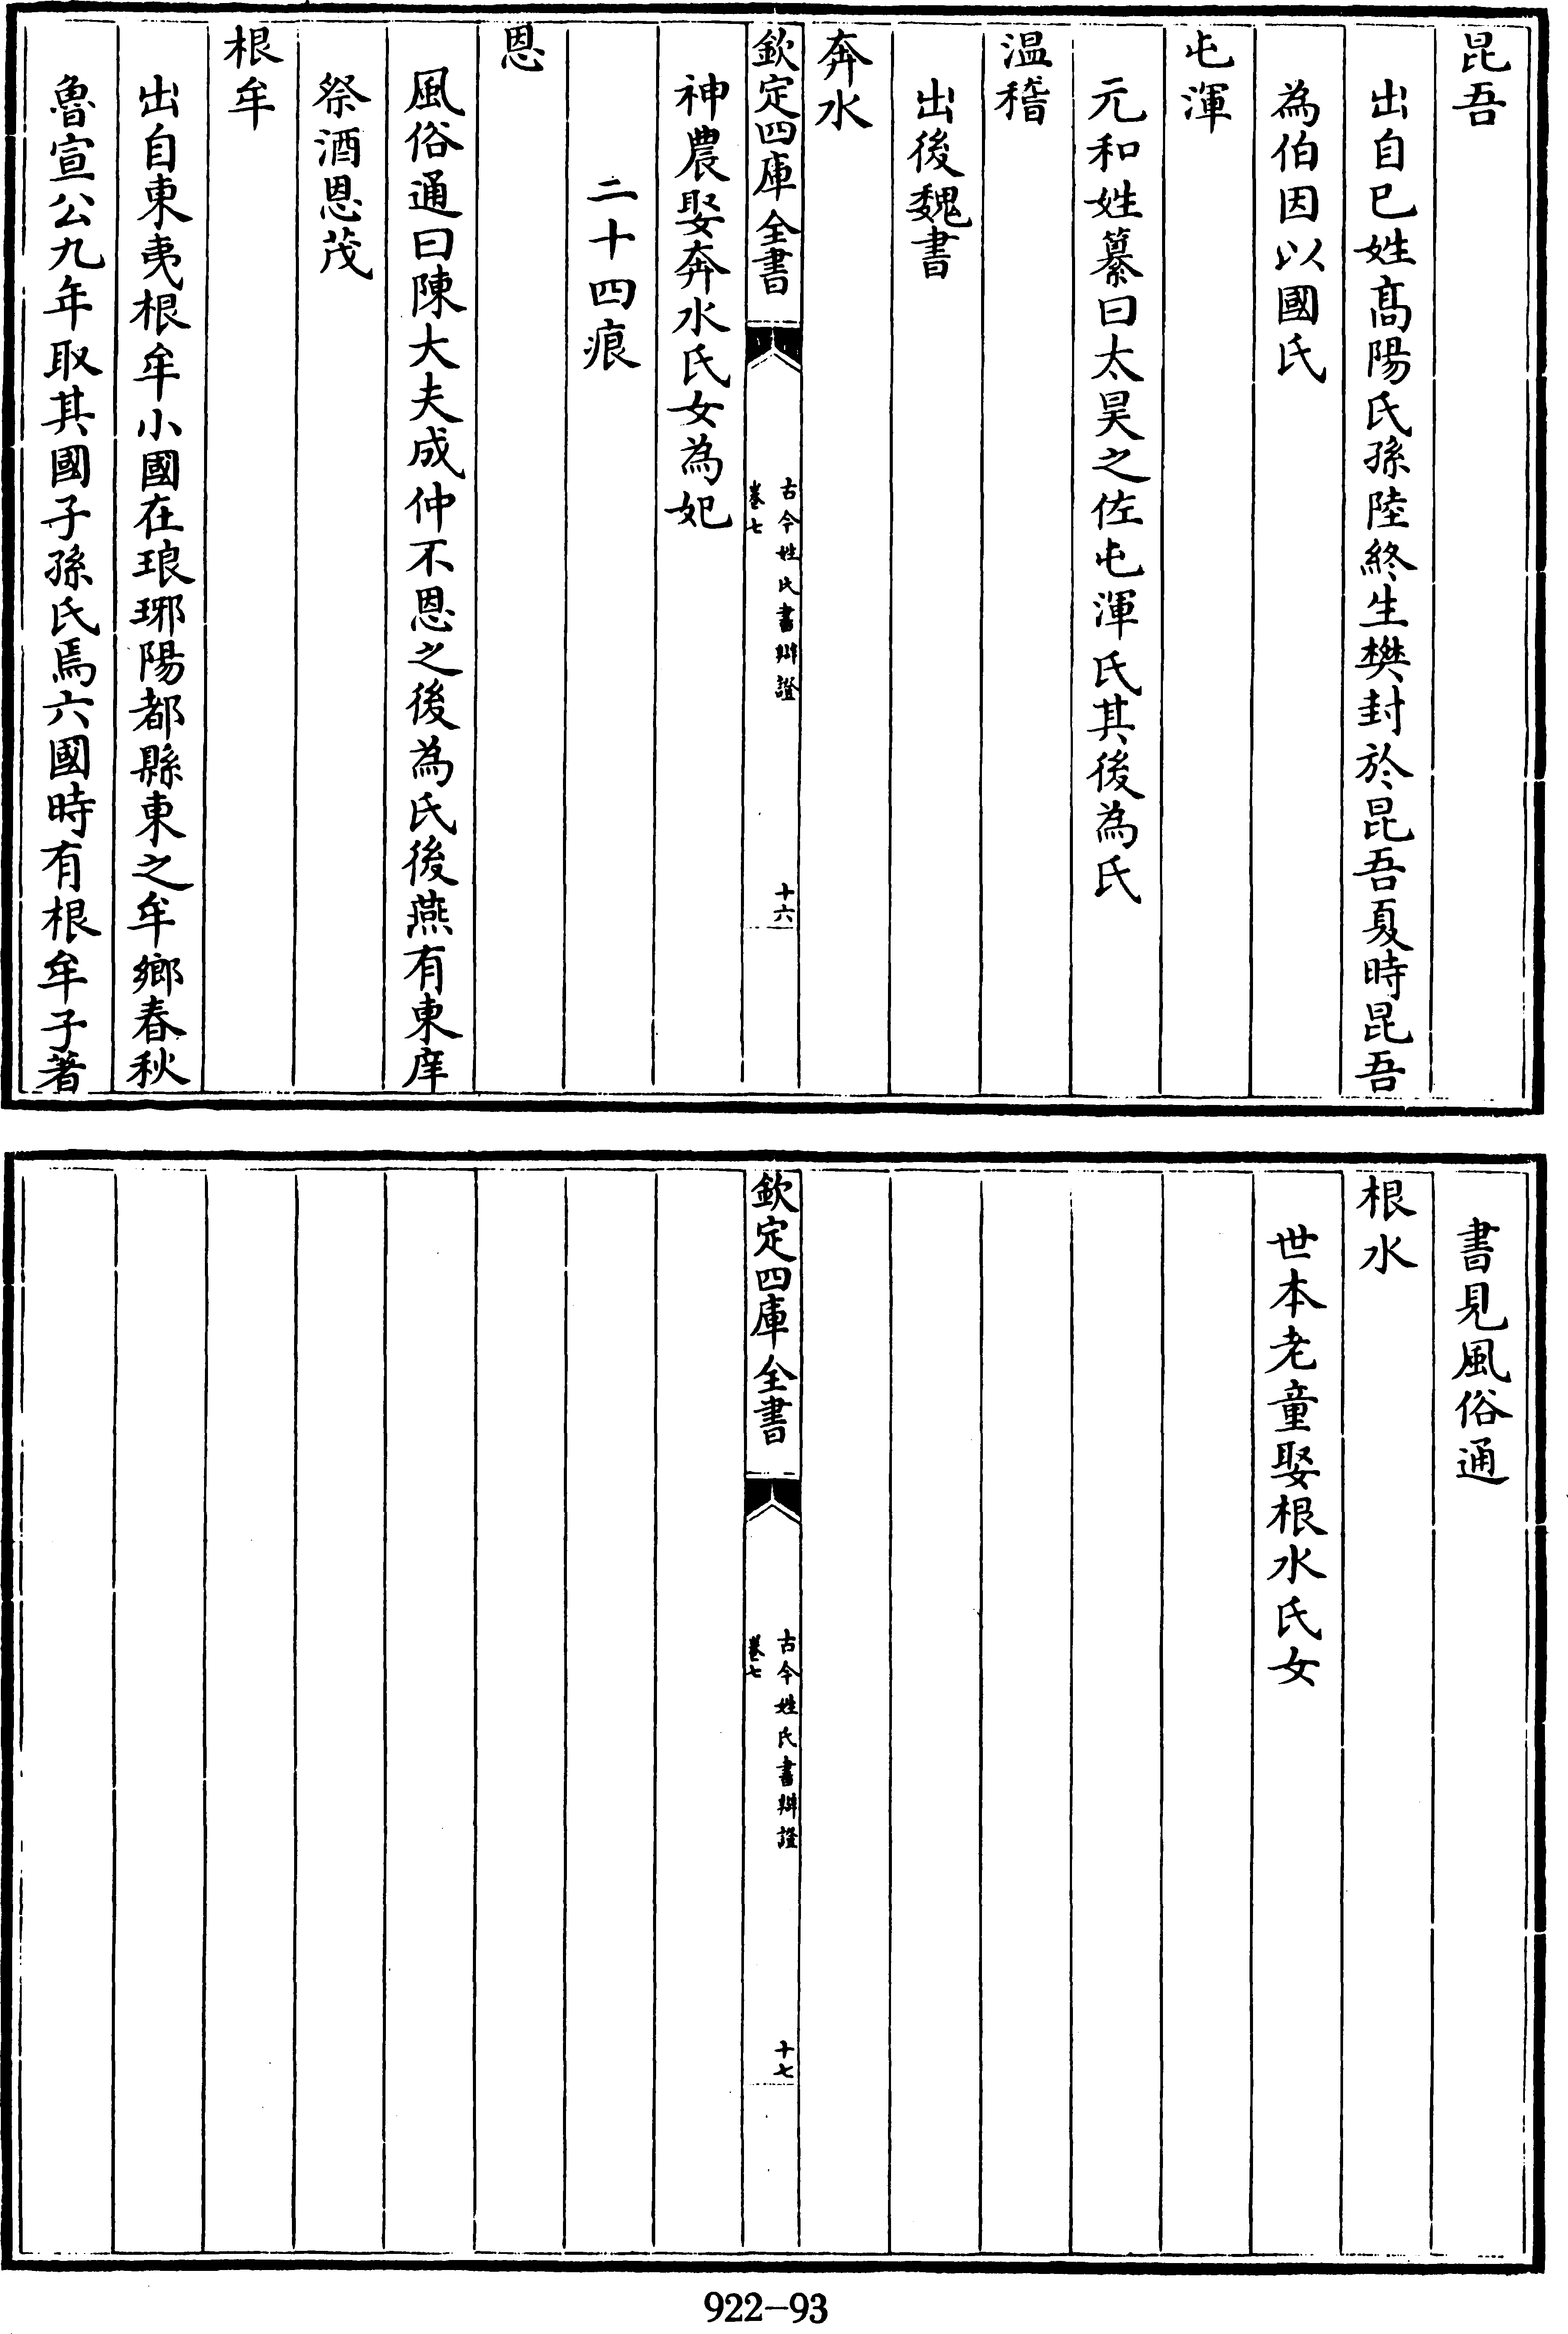 昆吾
出自巳姓髙陽氏孫陸終生樊封於昆吾夏時昆吾
為伯因以國氏
屯渾
元和姓纂曰太昊之佐屯渾氏其後為氏
温稽
出後魏書
奔水
欽定四庫全書
古今姓氏書辨證
卷七
十六
神農娶奔水氏女為妃
二十四痕
恩
風俗通曰陳大夫成仲不恩之後為氏後燕有東庠
祭酒恩茂
根牟
出自東夷根牟小國在琅琊陽都縣東之牟鄉春秋
魯宣公九年取其國子孫氏焉六國時有根牟子著
書見風俗通
根水
世本老童娶根水氏女
欽定四庫全書
古今姓氏書辨證
卷七
十七
922-93